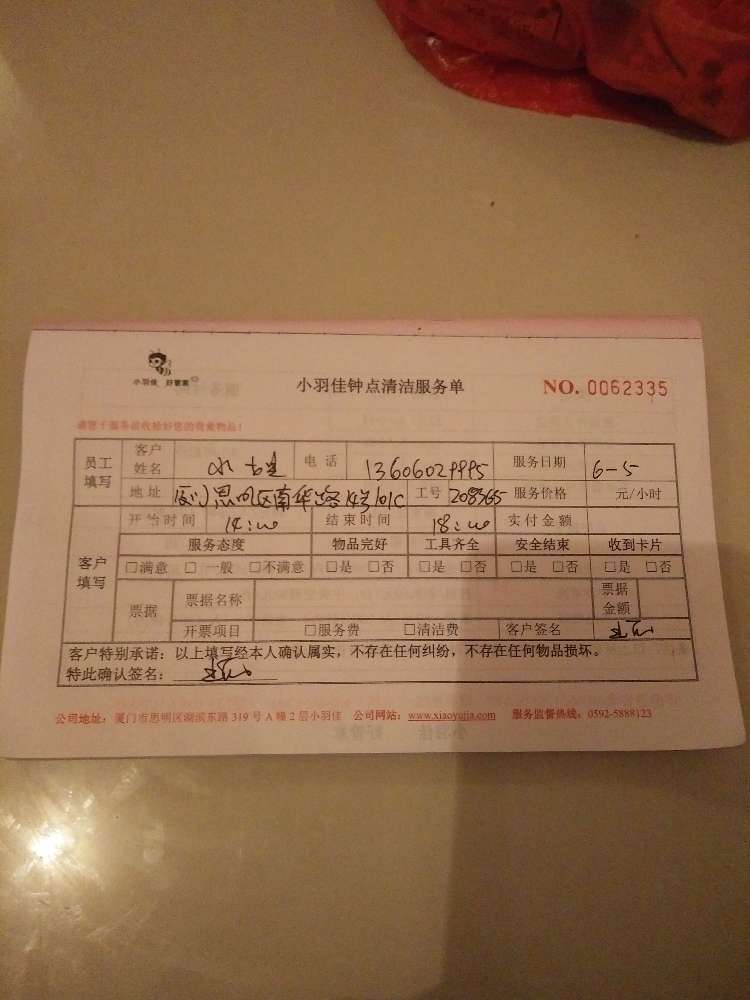 小羽佳 好管家
小羽佳钟点清洁服务单
NO. 0062335
请您于服务前收拾好您的贵重物品!
员工填写 客户姓名 电话 13606029995 服务日期 6-5
地址 厦门思明区南华路 101C 工号 208365 服务价格 元/小时
开始时间 14:00 结束时间 18:00 实付金额
客户填写 服务态度 物品完好 工具齐全 安全结束 收到卡片
□满意 □一般 □不满意 □是 □否 □是 □否 □是 □否 □是 □否
票据 票据名称 票据金额
开票项目 □服务费 □清洁费 客户签名
客户特别承诺:以上填写经本人确认属实,不存在任何纠纷,不存在任何物品损坏。
特此确认签名:
公司地址:厦门市思明区湖滨东路 319 号 A 幢 2 层小羽佳 公司网站:www.xiaoyujia.com 服务监督热线:0592-5888123